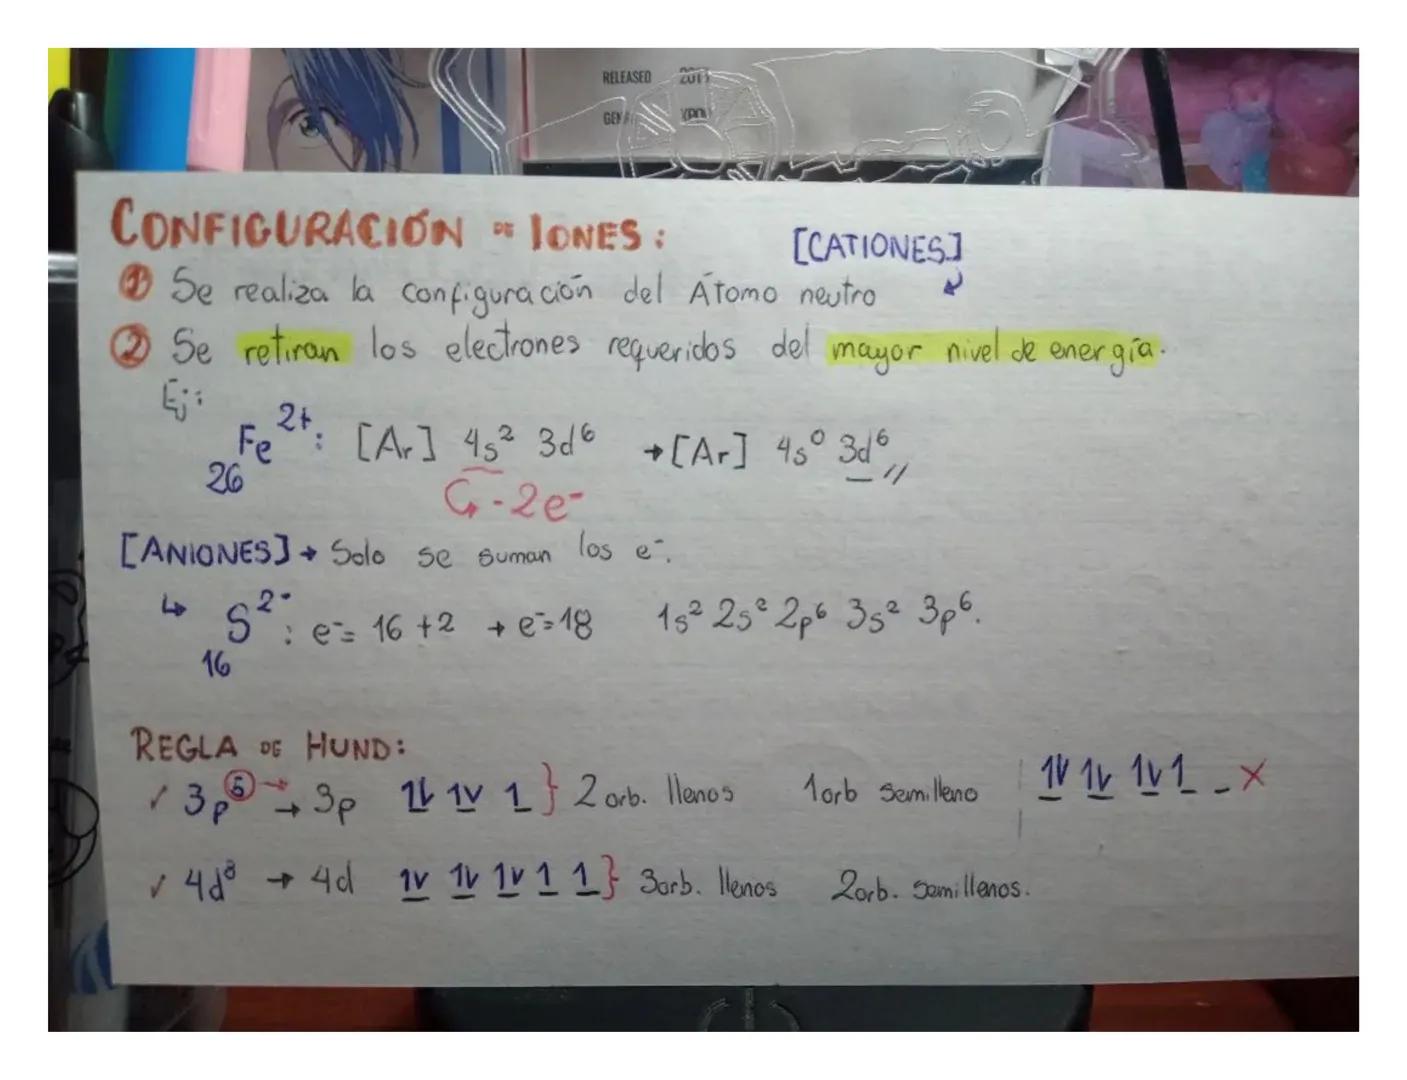 RELEASED 2017
CONFIGURACIÓN DE IONES:
[CATIONES]
① Se realiza la configuración del Átomo neutro
② Se retiran los electrones requeridos del mayor nivel de energía.
Ej:
₂₆Fe²⁺: [Ar] 4s² 3d⁶ → [Ar] 4s⁰ 3d⁶
- 2e⁻
[ANIONES] → Solo se suman los e⁻.
₁₆S²⁻: e⁻= 16 +2 → e⁻=18 1s² 2s² 2p⁶ 3s² 3p⁶.
REGLA DE HUND:
✓ 3p⁵ → 3p 1l 1v 1 } 2 orb. llenos 1orb semilleno | 1v 1v 1v 1 _ X
✓ 4d⁸ → 4d 1v 1v 1v 1 1 } 3orb. llenos 2orb. semillenos.